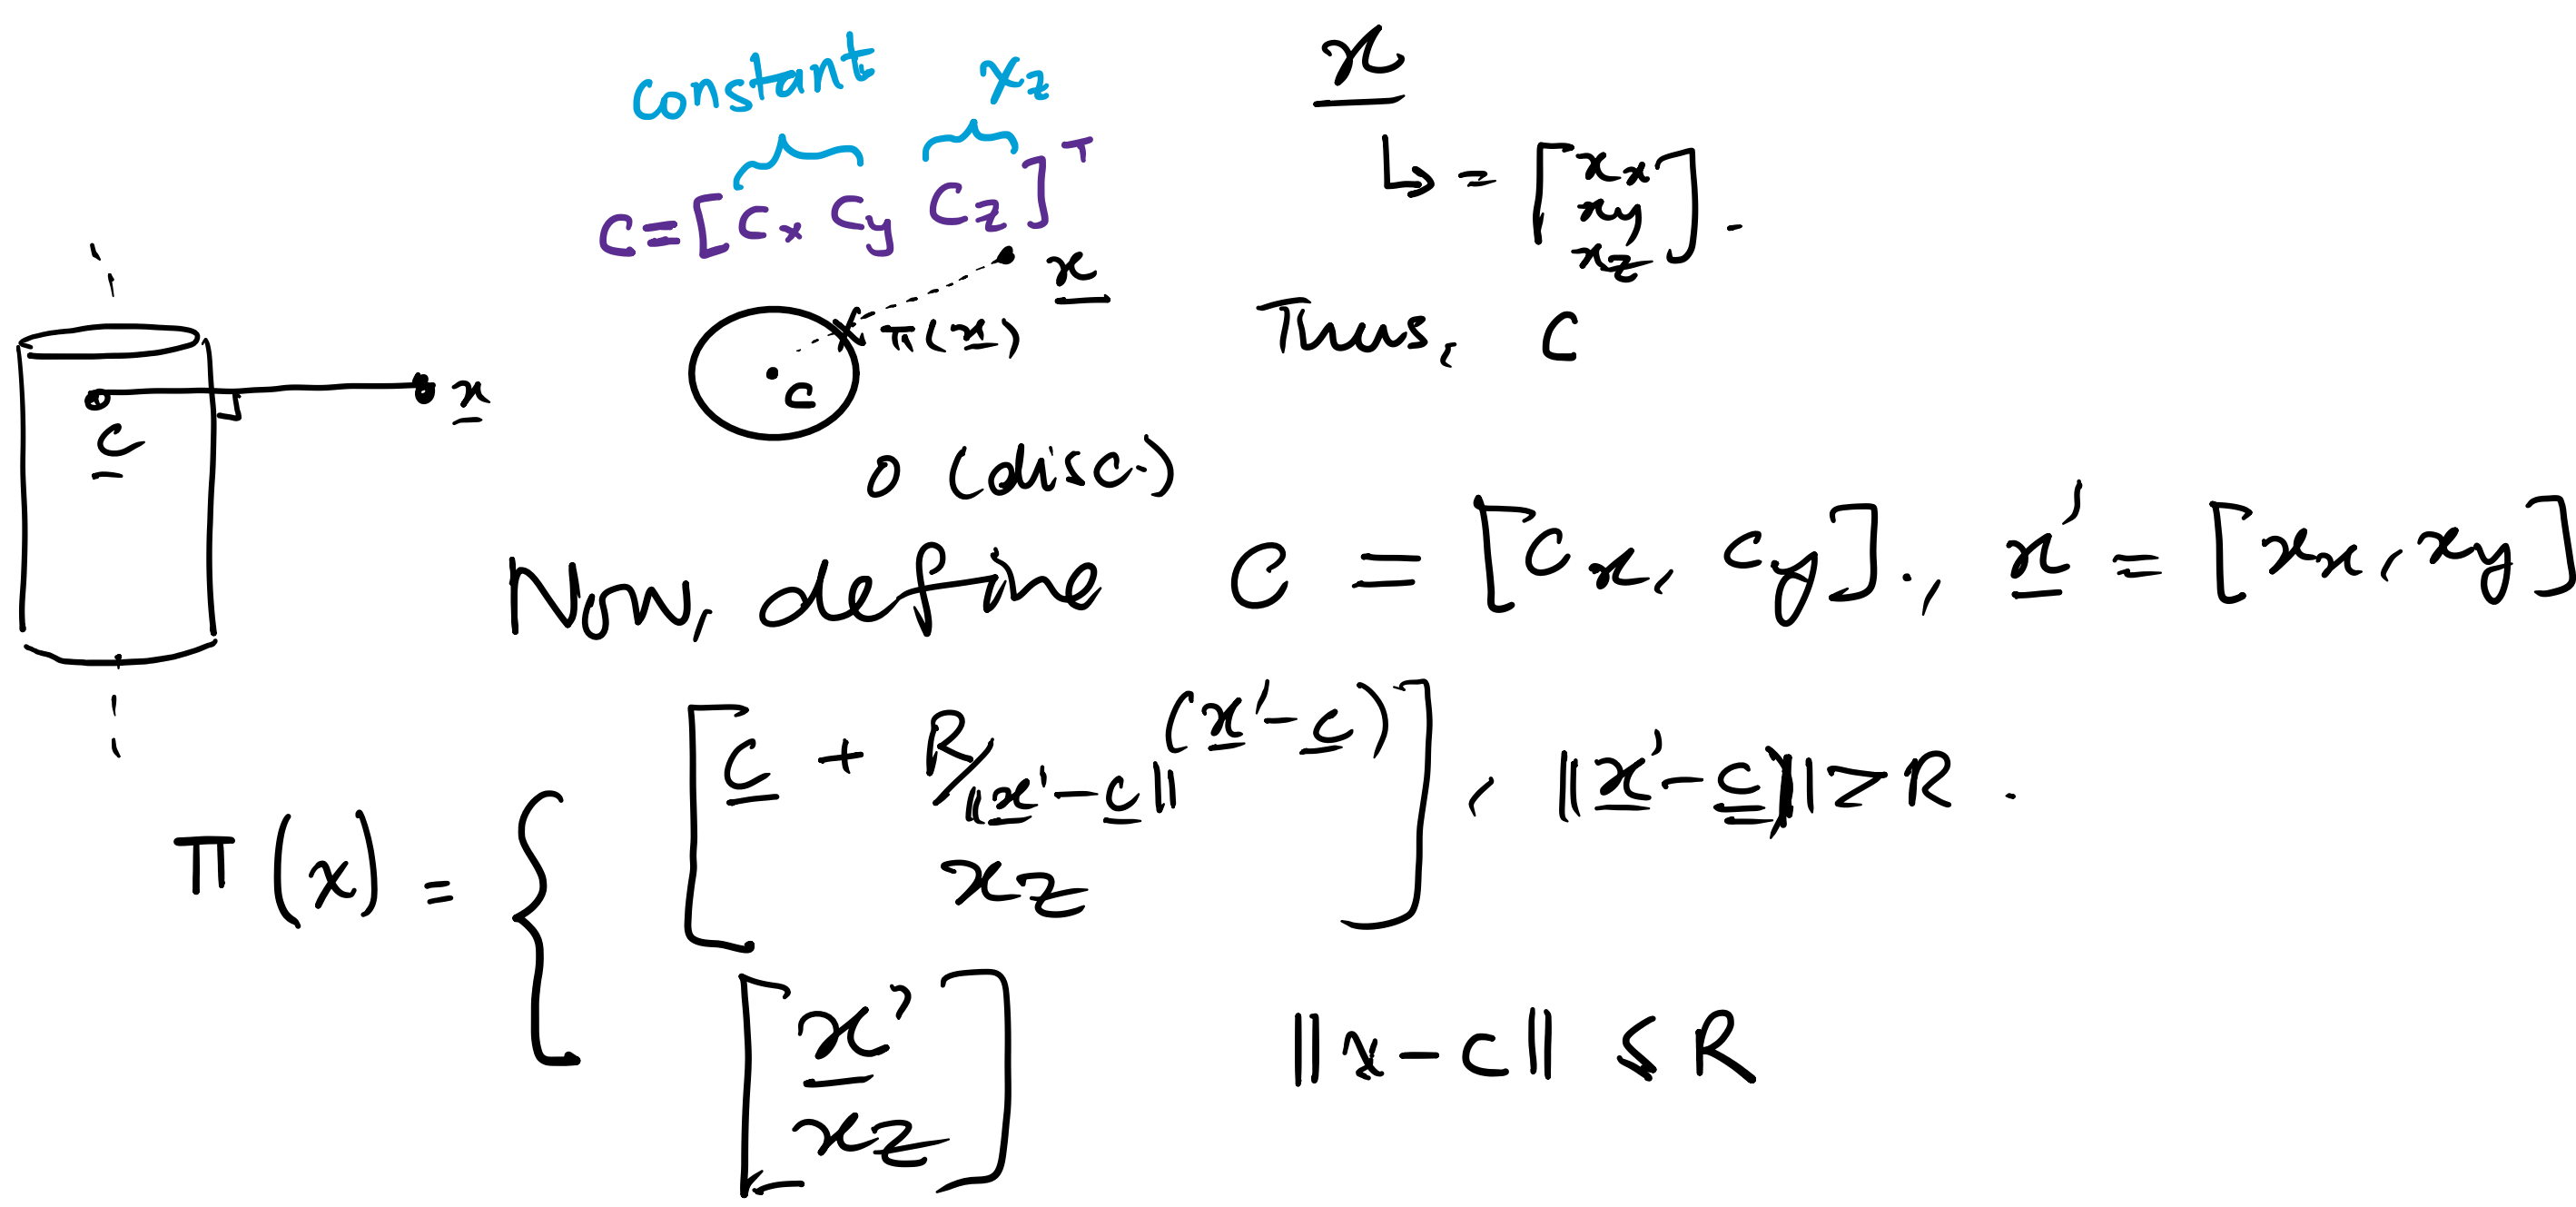 constant x_z
c = [c_x c_y c_z]^T
x
↳ = [x_x x_y x_z].
x
π(x)
c
Thus, C
x
c
O (disc.)
Now, define C = [c_x, c_y]., x' = [x_x, x_y]
π(x) = {
[c + R/||x'-c|| (x'-c)
x_z] , ||x'-c|| > R.
[x'
x_z] ||x-c|| ≤ R